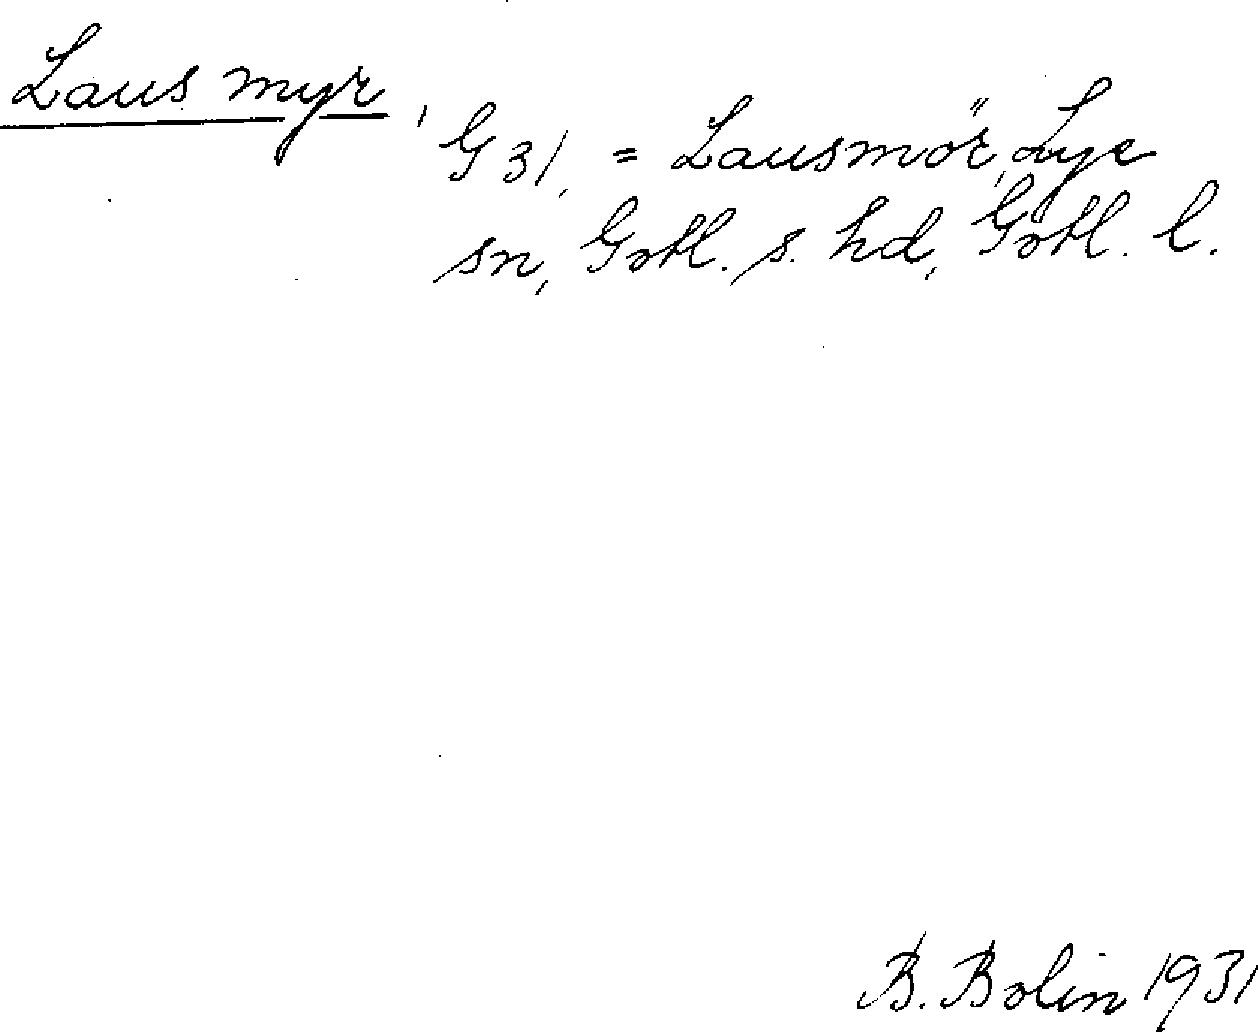 Laus myr, G 31, = Lausmör, Lye
sn, Gotl. s. hd, Gotl. l.
B. Bolin 1931